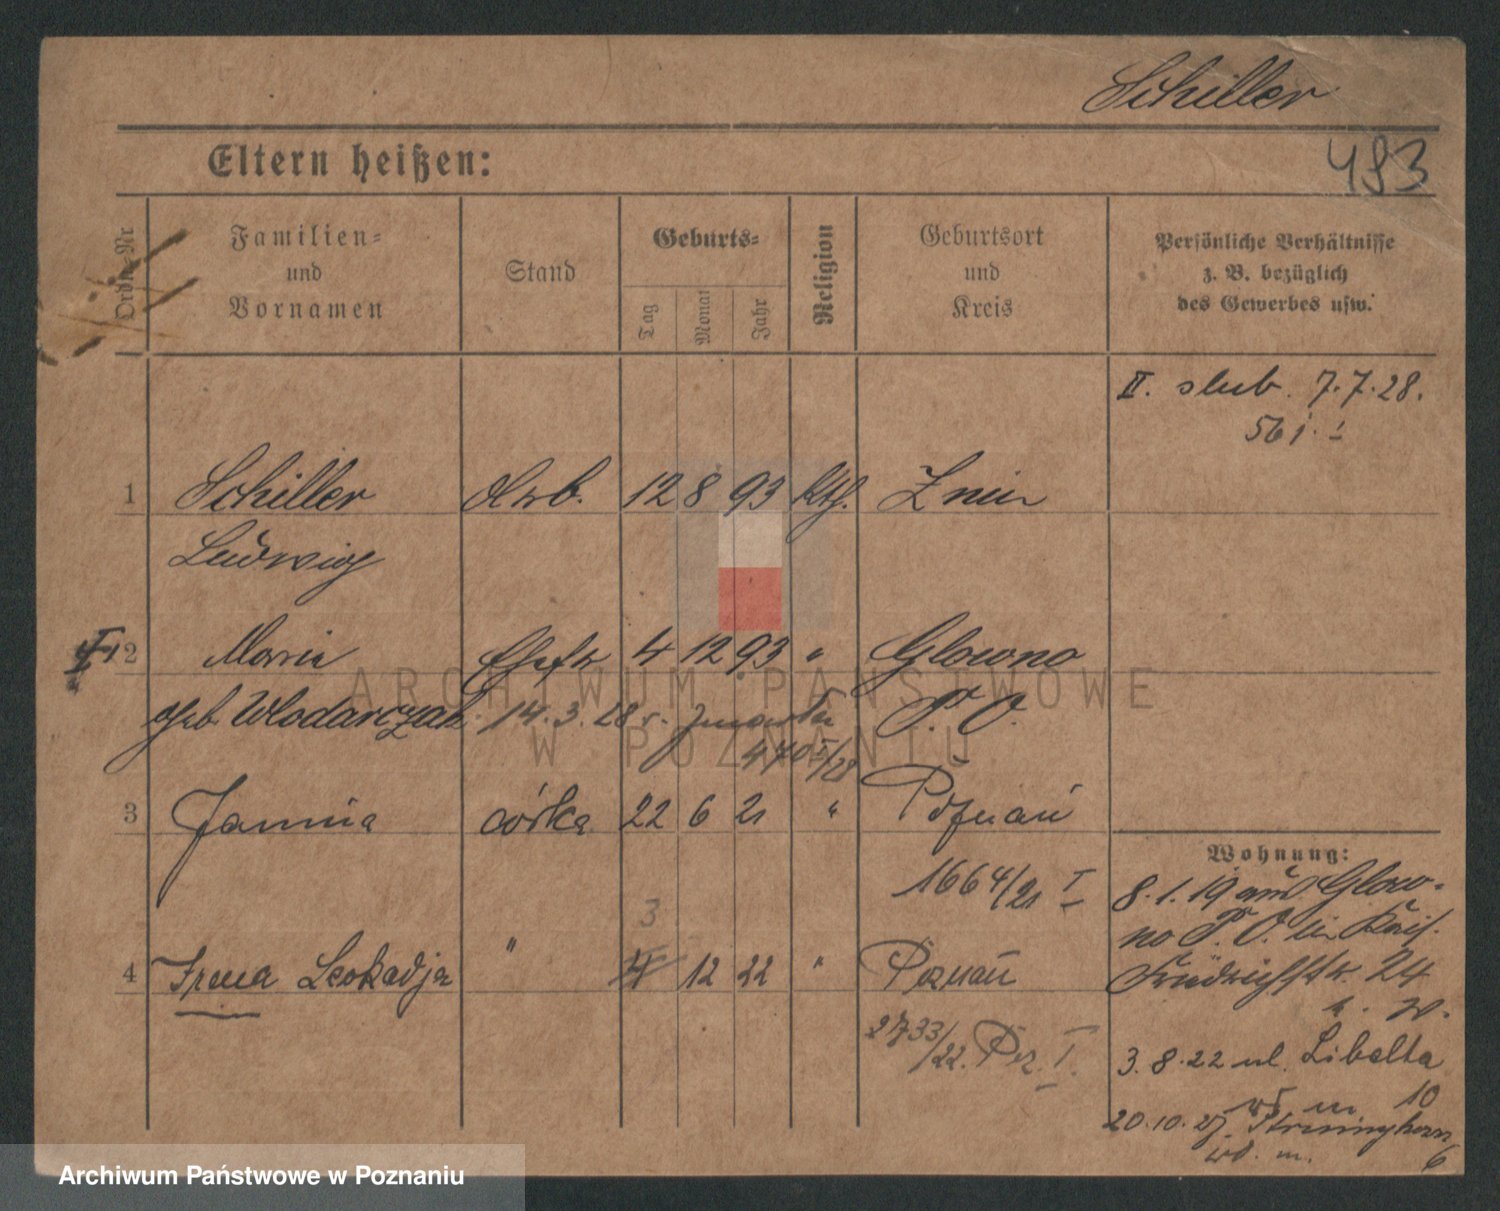 Schiller
Eltern heißen:
493
Ordn.-Nr
Familien=
und
Vornamen
Stand
Geburts=
Tag
Monat
Jahr
Religion
Geburtsort
und
Kreis
Persönliche Verhältnisse
z. B. bezüglich
des Gewerbes usw.
II. slub. 7.7.28.
1 Schiller 12 8 93 Kth. Znin
Ludwig
2 Maria Ehefr 4 12 93 " Glowno
geb. Wlodarczak 14.3.28 P. O.
3 Janina córka 22 6 21 " Poznań
1664/21 I
Wohnung:
8.1.19 aus Glow-
no P. O. in
3
4 Irena Leokadja " 4 12 22 " Poznań
24
2733/22. Poz. I.
3.8.22 ul. Libelta
10
20.10.27
6
ARCHIWUM PAŃSTWOWE
W POZNANIU
Archiwum Państwowe w Poznaniu